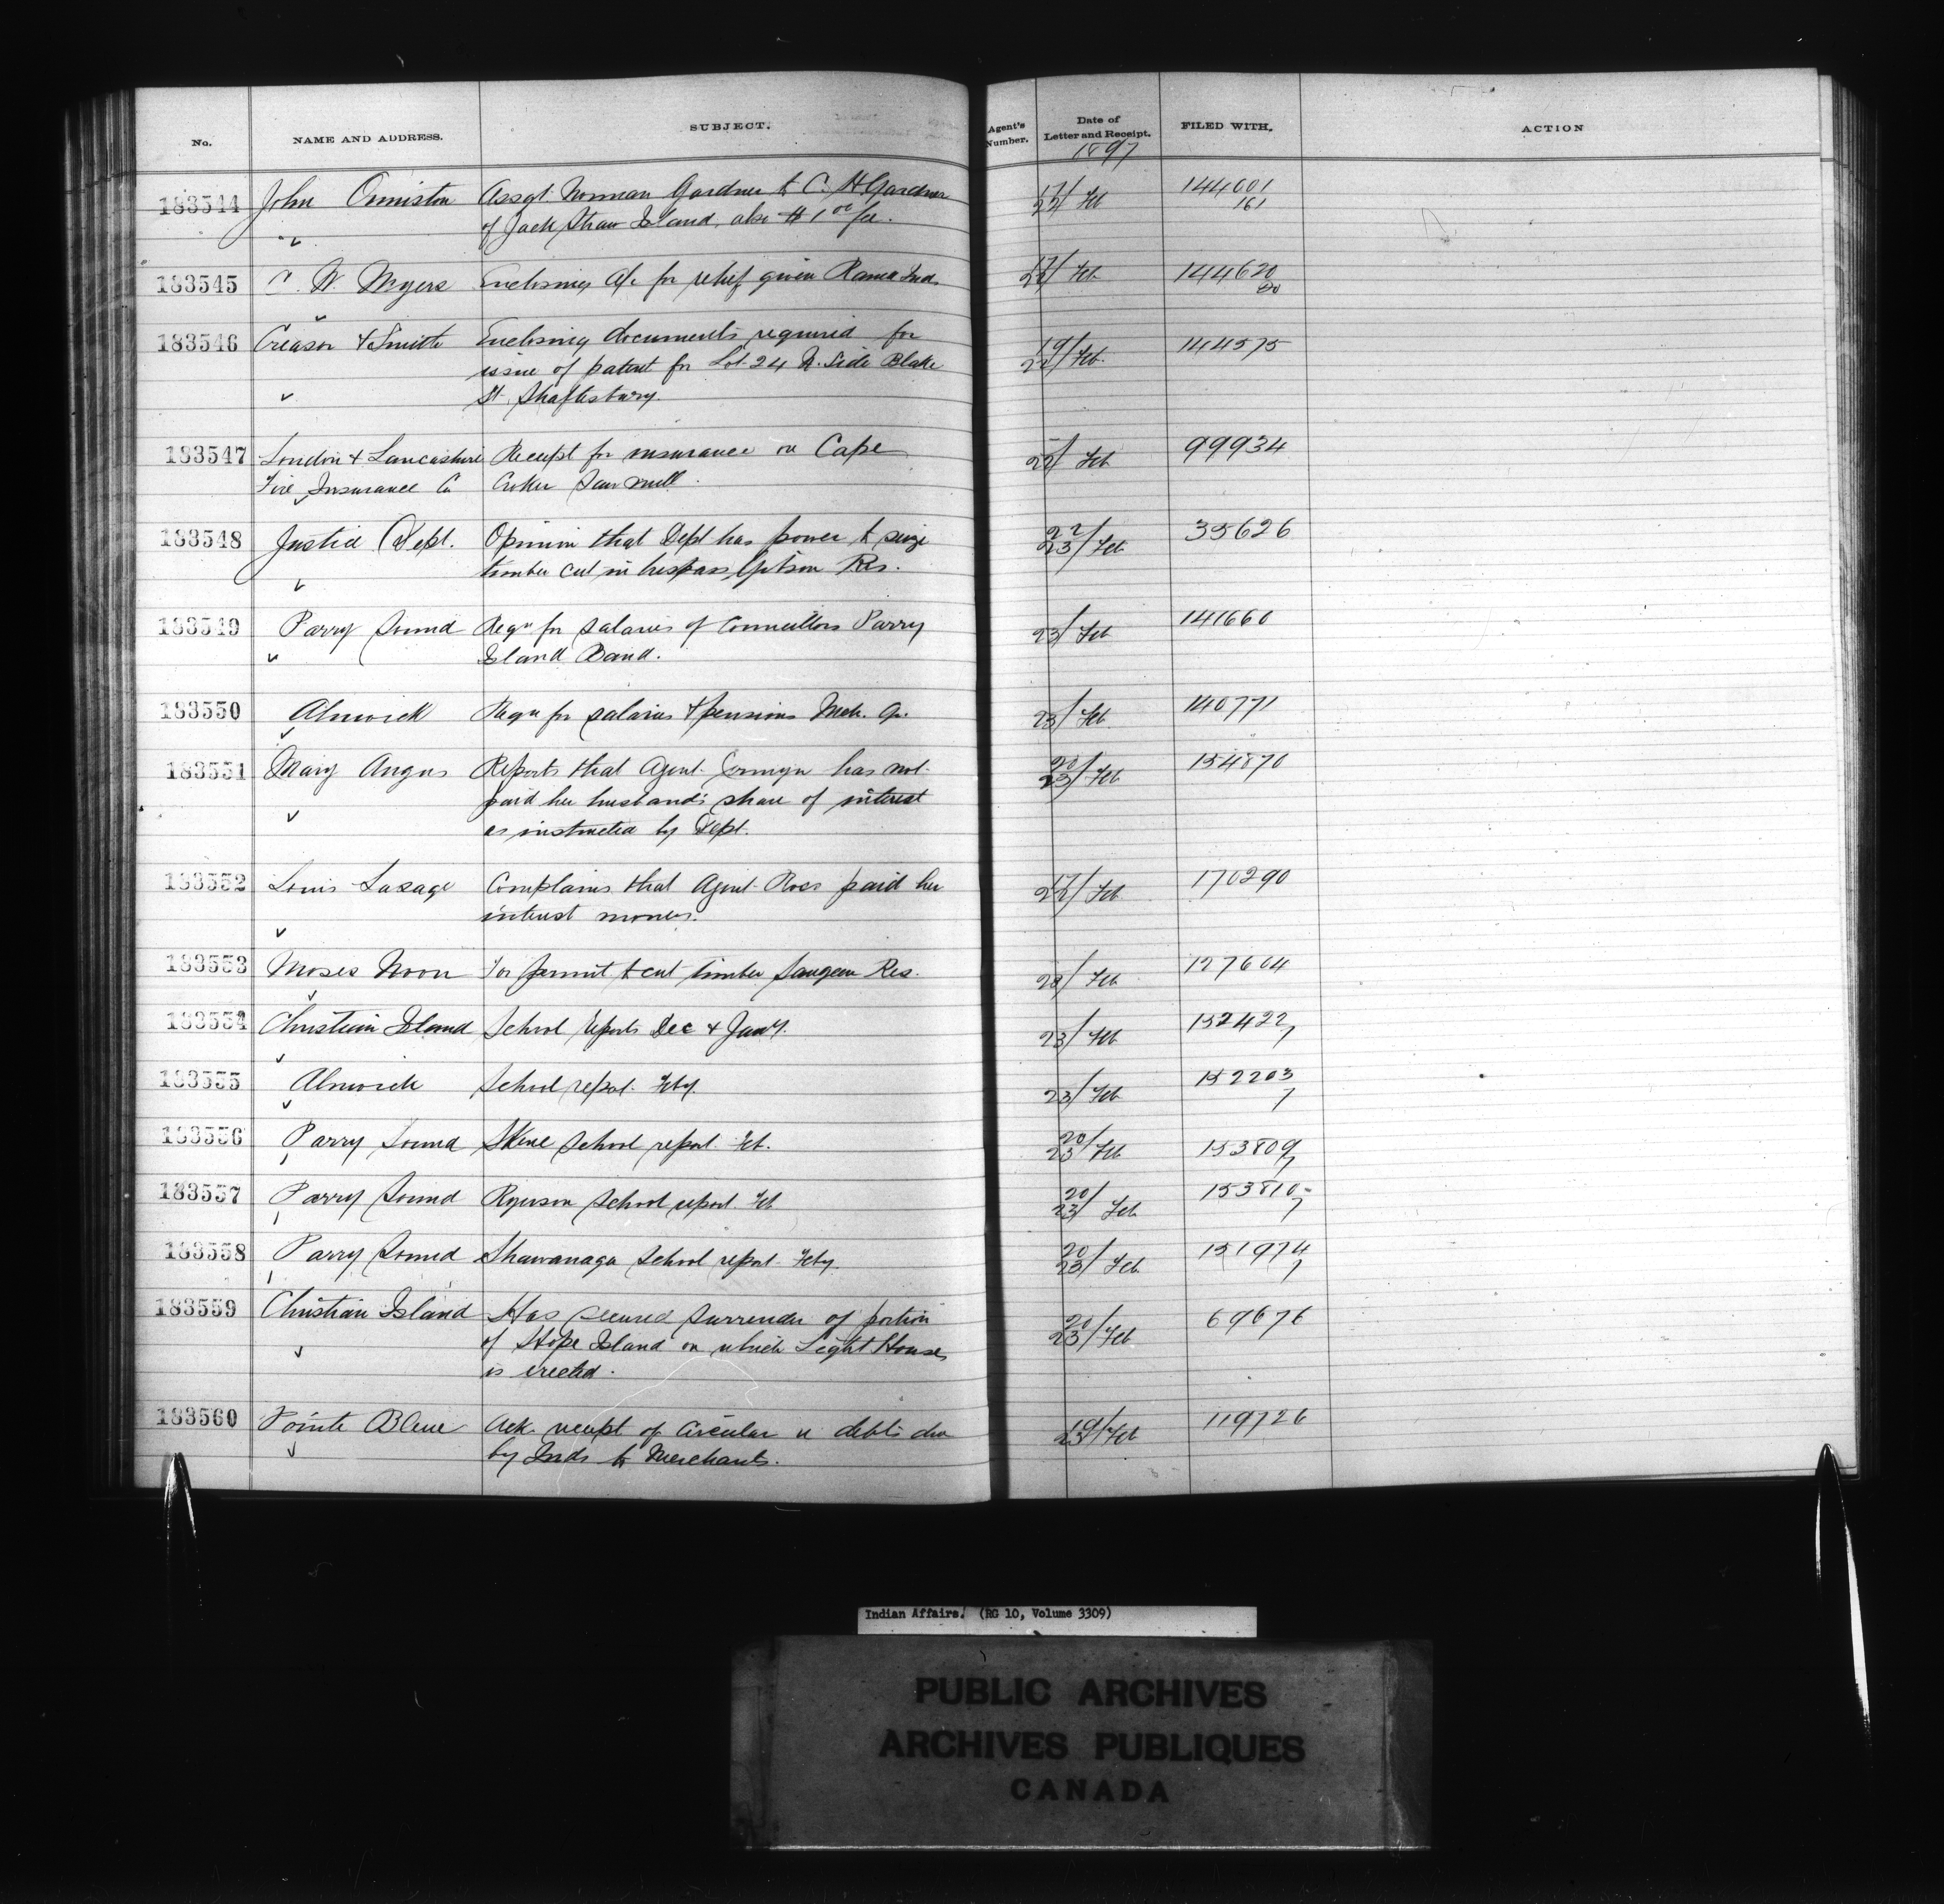 No. NAME AND ADDRESS. SUBJECT. Agent's Number. Date of Letter and Receipt. FILED WITH. ACTION
1897
183544 John Ormiston Assgt. Norman Gardner to C. H Gardner 17/22 Feb 144601
of Jack Straw Island, also $1 00/ fee. 161
183545 C. N. Myers Enclosing a/c for relief given Rama Inds 17/22 Feb 144620
20
183546 Creasor & Smith Enclosing documents required for 19/22 Feb. 144575
issue of patent for Lot 24 N. Side Blake
St. Shaftesbury.
183547 London & Lancashire Receipt for insurance on Cape 22/ Feb 99934
Fire Insurance Co Croker Saw mill.
183548 Justice Dept. Opinion that Dept has power to seize 22/23 Feb 35626
timber cut in trespass, Gibson Res.
183549 Parry Sound Reqn for salaries of Councillors Parry 23/ Feb 141660
Island Band.
183550 Alnwick Reqn for salaries & pensions Mch. Qr. 23/ Feb 140771
183551 Mary Angus Reports that Agent Jermyn has not 20/23 Feb 154870
paid her husband's share of interest
as instructed by Dept.
183552 Louis Sasage Complains that Agent Ross paid her 17/22 Feb 170290
interest money.
183553 Moses Noon For permit to cut timber Saugeen Res. 20/ Feb 127604
183554 Christian Island School reports Dec & Jany. 23/ Feb 152422
7
183555 Alnwick School report Feby. 23/ Feb 152203
7
183556 Parry Sound Skene School report Feb. 20/23 Feb 153809
7
183557 Parry Sound Ryerson School report Feb 20/23 Feb 153810
7
183558 Parry Sound Shawanaga School report Feby. 20/23 Feb 151974
7
183559 Christian Island Has secured surrender of portion 20/23 Feb 69676
of Hope Island on which Light House
is erected.
183560 Pointe Bleue Ack. receipt of Circular re debts due 19/23 Feb 119726
by Inds to Merchants.
Indian Affairs. (RG 10, Volume 3309)
PUBLIC ARCHIVES
ARCHIVES PUBLIQUES
CANADA